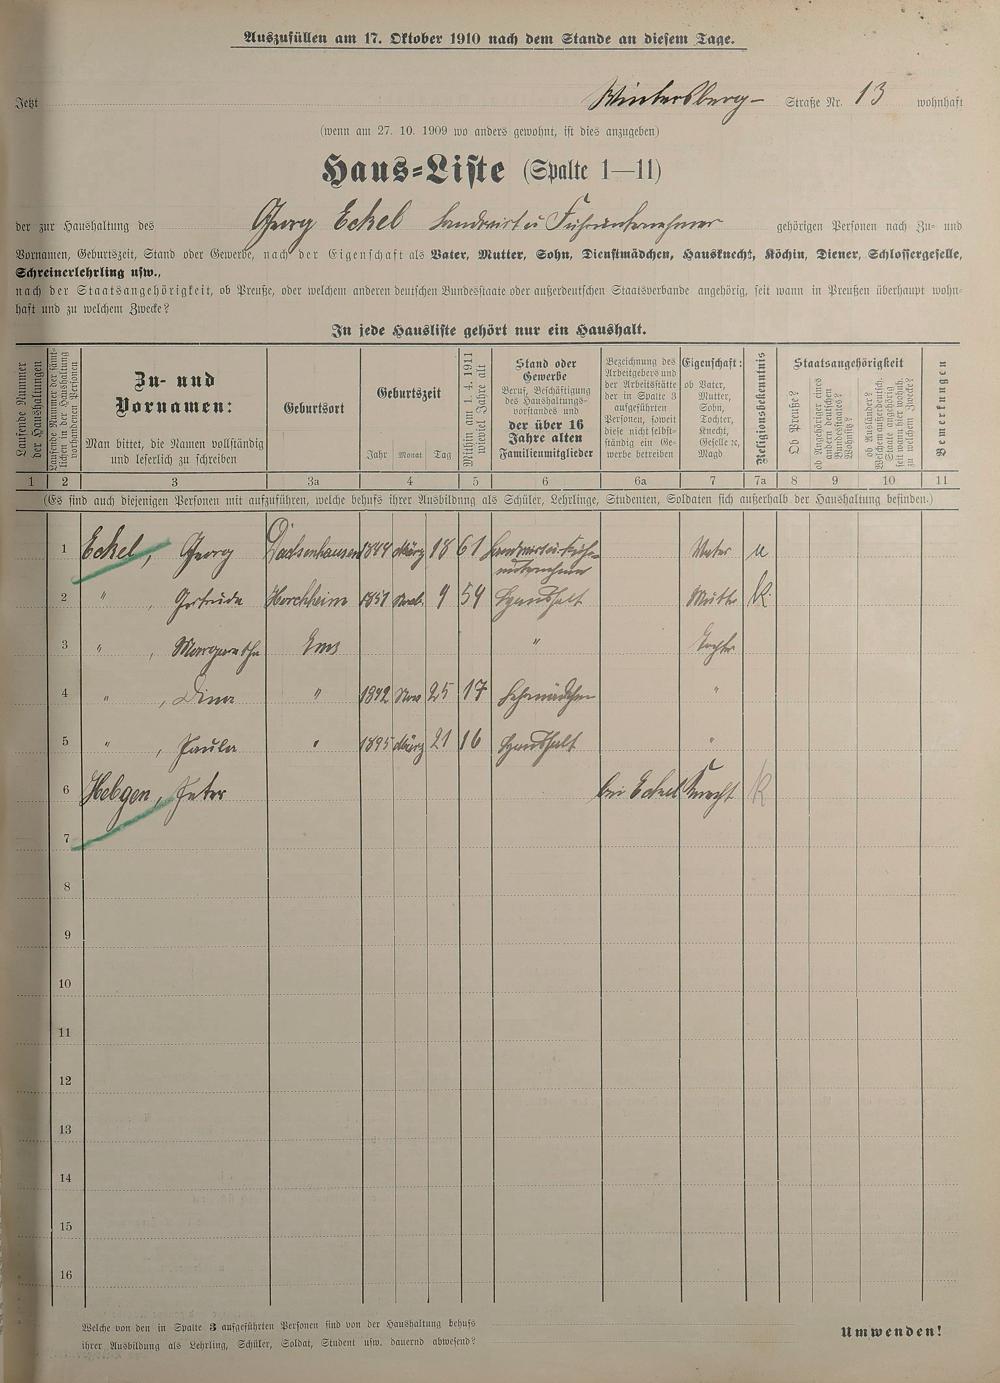 Auszufüllen am 17. Oktober 1910 nach dem Stande an diesem Tage.
Jetzt Wintersberg- Straße Nr. 13 wohnhaft
(wenn am 27. 10. 1909 wo anders gewohnt, ist dies anzugeben)
Haus-Liste (Spalte 1—11)
der zur Haushaltung des Georg Eckel Landwirt u Fuhrunternehmer gehörigen Personen nach Zu- und
Vornamen, Geburtszeit, Stand oder Gewerbe, nach der Eigenschaft als Vater, Mutter, Sohn, Dienstmädchen, Hausknecht, Köchin, Diener, Schlossergeselle,
Schreinerlehrling usw.,
nach der Staatsangehörigkeit, ob Preuße, oder welchem anderen deutschen Bundesstaate oder außerdeutschen Staatsverbande angehörig, seit wann in Preußen überhaupt wohn-
haft und zu welchem Zwecke?
In jede Hausliste gehört nur ein Haushalt.
Laufende Nummer der Haushaltungen
Laufende Nummer der sämtlichen in der Haushaltung vorhandenen Personen
Zu- und
Vornamen:
Man bittet, die Namen vollständig
und leserlich zu schreiben
Geburtsort
Geburtszeit
Jahr Monat Tag
Mithin am 1. 4. 1911 wieviel Jahre alt
Stand oder
Gewerbe
Beruf, Beschäftigung
des Haushaltungs-
vorstandes und
der über 16
Jahre alten
Familienmitglieder
Bezeichnung des
Arbeitgebers und
der Arbeitsstätte
der in Spalte 3
aufgeführten
Personen, soweit
diese nicht selbst-
ständig ein Ge-
werbe betreiben
Eigenschaft:
ob Vater,
Mutter,
Sohn,
Tochter,
Knecht,
Geselle ꝛc,
Magd
Religionsbekenntnis
Staatsangehörigkeit
Ob Preuße?
ob Angehöriger eines
andern deutschen
Bundesstaates?
Wohnsitz?
ob Ausländer?
Welchem außerdeutsch.
Staate angehörig
seit wann hier wohnh.
zu welchem Zwecke?
Bemerkungen
1 2 3 3a 4 5 6 6a 7 7a 8 9 10 11
(Es sind auch diejenigen Personen mit aufzuführen, welche behufs ihrer Ausbildung als Schüler, Lehrlinge, Studenten, Soldaten sich außerhalb der Haushaltung befinden.)
1 Eckel, Georg Dachsenhausen März 18 61 Landwirt u Fuhr- Vater
unternehmer
2 " , Gertrude Horchheim 1851 9 59 Haushalt Mutter K.
3 " , Margaretha Ems " Tochter
4 " , Dina " Nov 25 17 Lehrmädchen "
5 " , Paula " 1895 März 21 16 Haushalt "
6 Hebgen, Peter bei Eckel Knecht K
7
8
9
10
11
12
13
14
15
16
Welche von den in Spalte 3 aufgeführten Personen sind von der Haushaltung behufs
ihrer Ausbildung als Lehrling, Schüler, Soldat, Student usw. dauernd abwesend?
Umwenden!